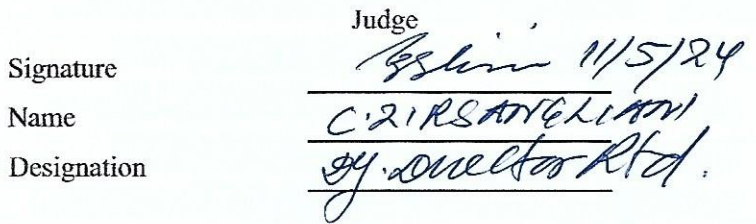 Judge
Signature 11/5/24
Name C.ZIRSANGLIANI
Designation Dy. Director Rtd.